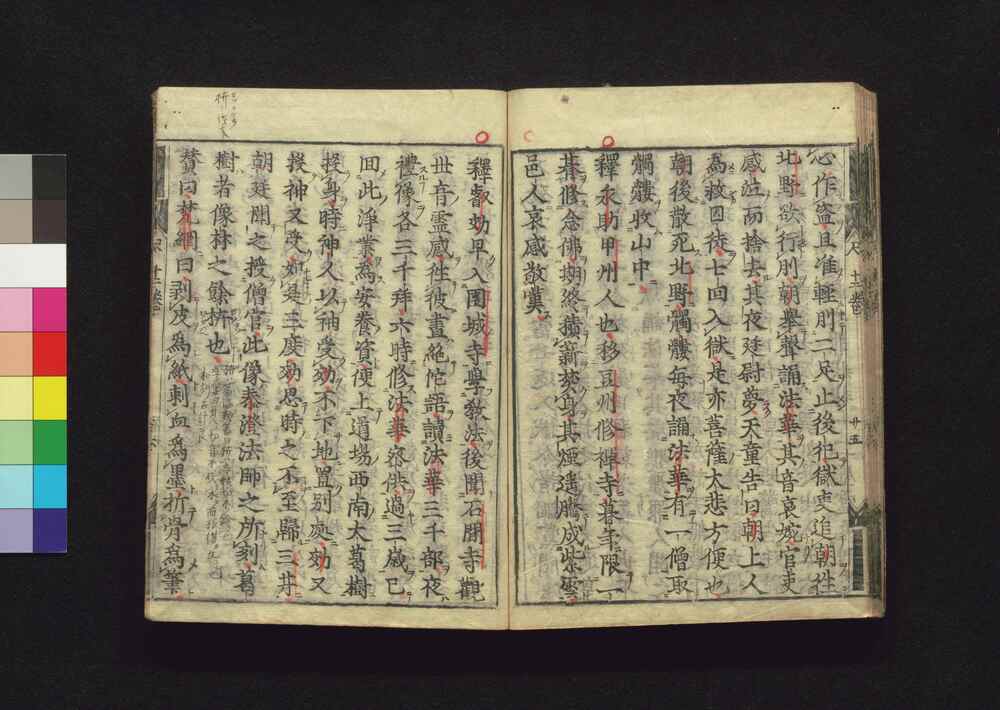 心作盜且准輕刖二足止後犯獄吏追朝往
北野欲行刖朝舉聲誦法華其音哀婉官吏
感泣而捨去其夜廷尉夢天童告曰朝上人
為救囚徒七回入獄是亦菩薩大悲方便也
朝後散死北野髑髏每夜誦法華有一僧取
髑髏收山中
釋永助甲州人也移豆州修禪寺暮年限一
春修念佛期終積薪焚身其煙遙騰成紫雲
邑人哀感敬奠
釋叡効早入園城寺學教法後聞石間寺觀
世音靈感往彼晝絕他語讀法華三千部夜
禮像各三千拜六時修法華祭供過三歲已
回此淨業為安養資便上道場西南大葛樹
投身時神人以袖受効不下地置別處効又
投神又受如是三度効思時之不至歸三井
朝廷聞之授僧官此像泰澄法師之所刻葛
樹者像材之餘枿也
賛曰梵網曰剥皮為紙刺血為墨析骨為筆
十二卷
廿五